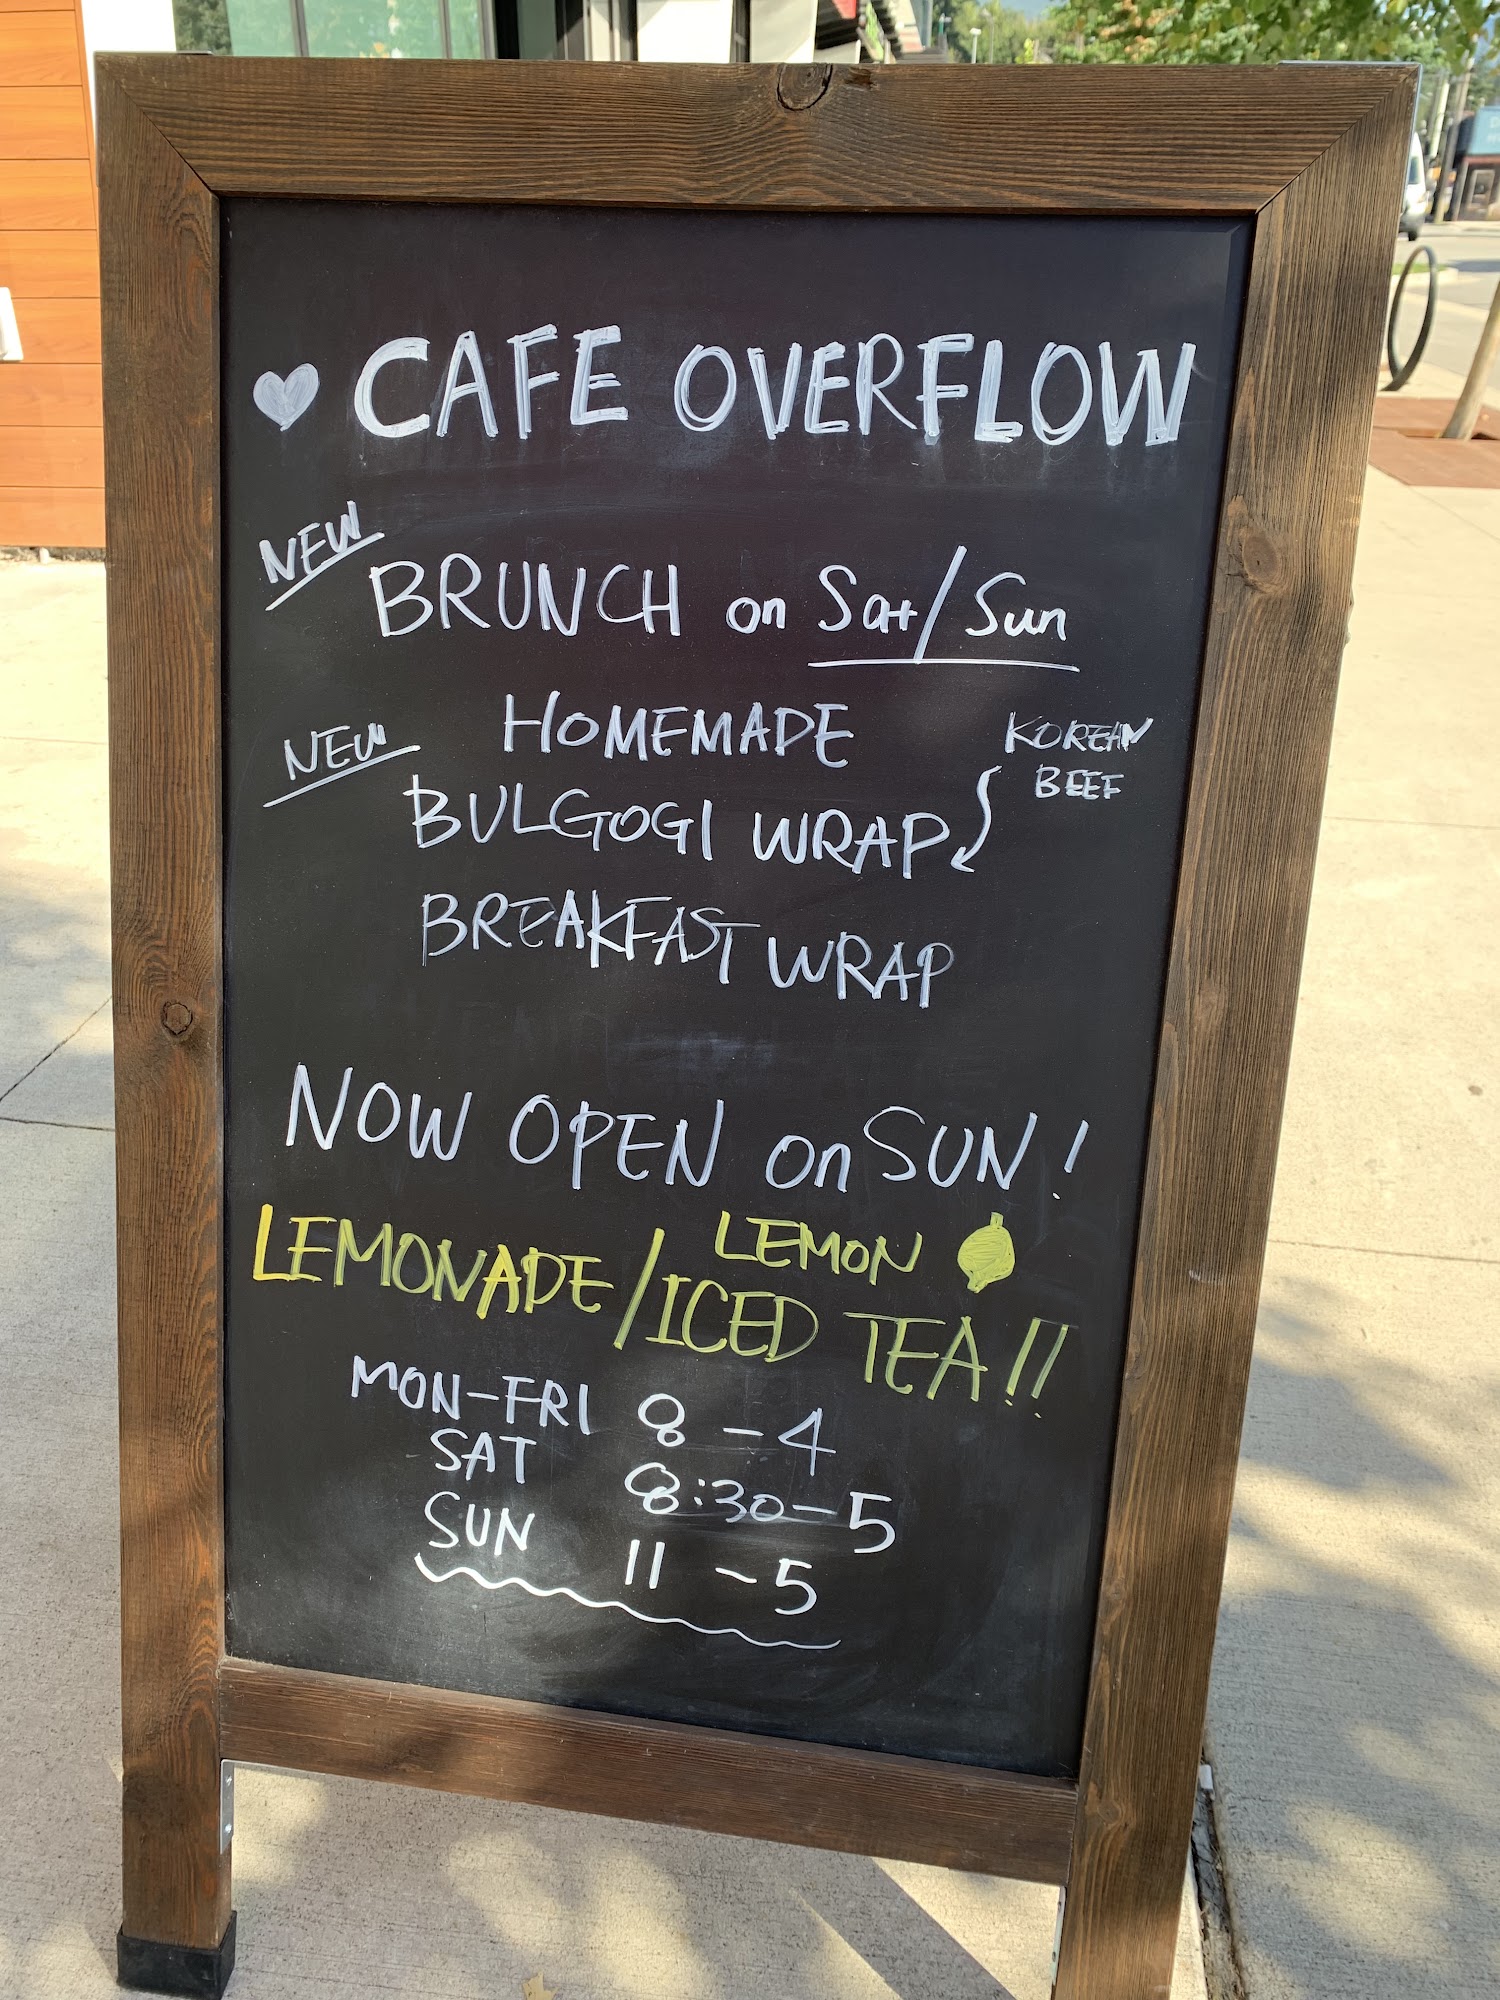 CAFE OVERFLOW
NEW
BRUNCH on Sat/Sun
NEW
HOMEMADE
KOREAN
BEEF
BULGOGI WRAP
BREAKFAST WRAP
NOW OPEN on SUN!
LEMONADE/LEMON
ICED TEA!!
MON-FRI 8-4
SAT 8:30-5
SUN 11-5